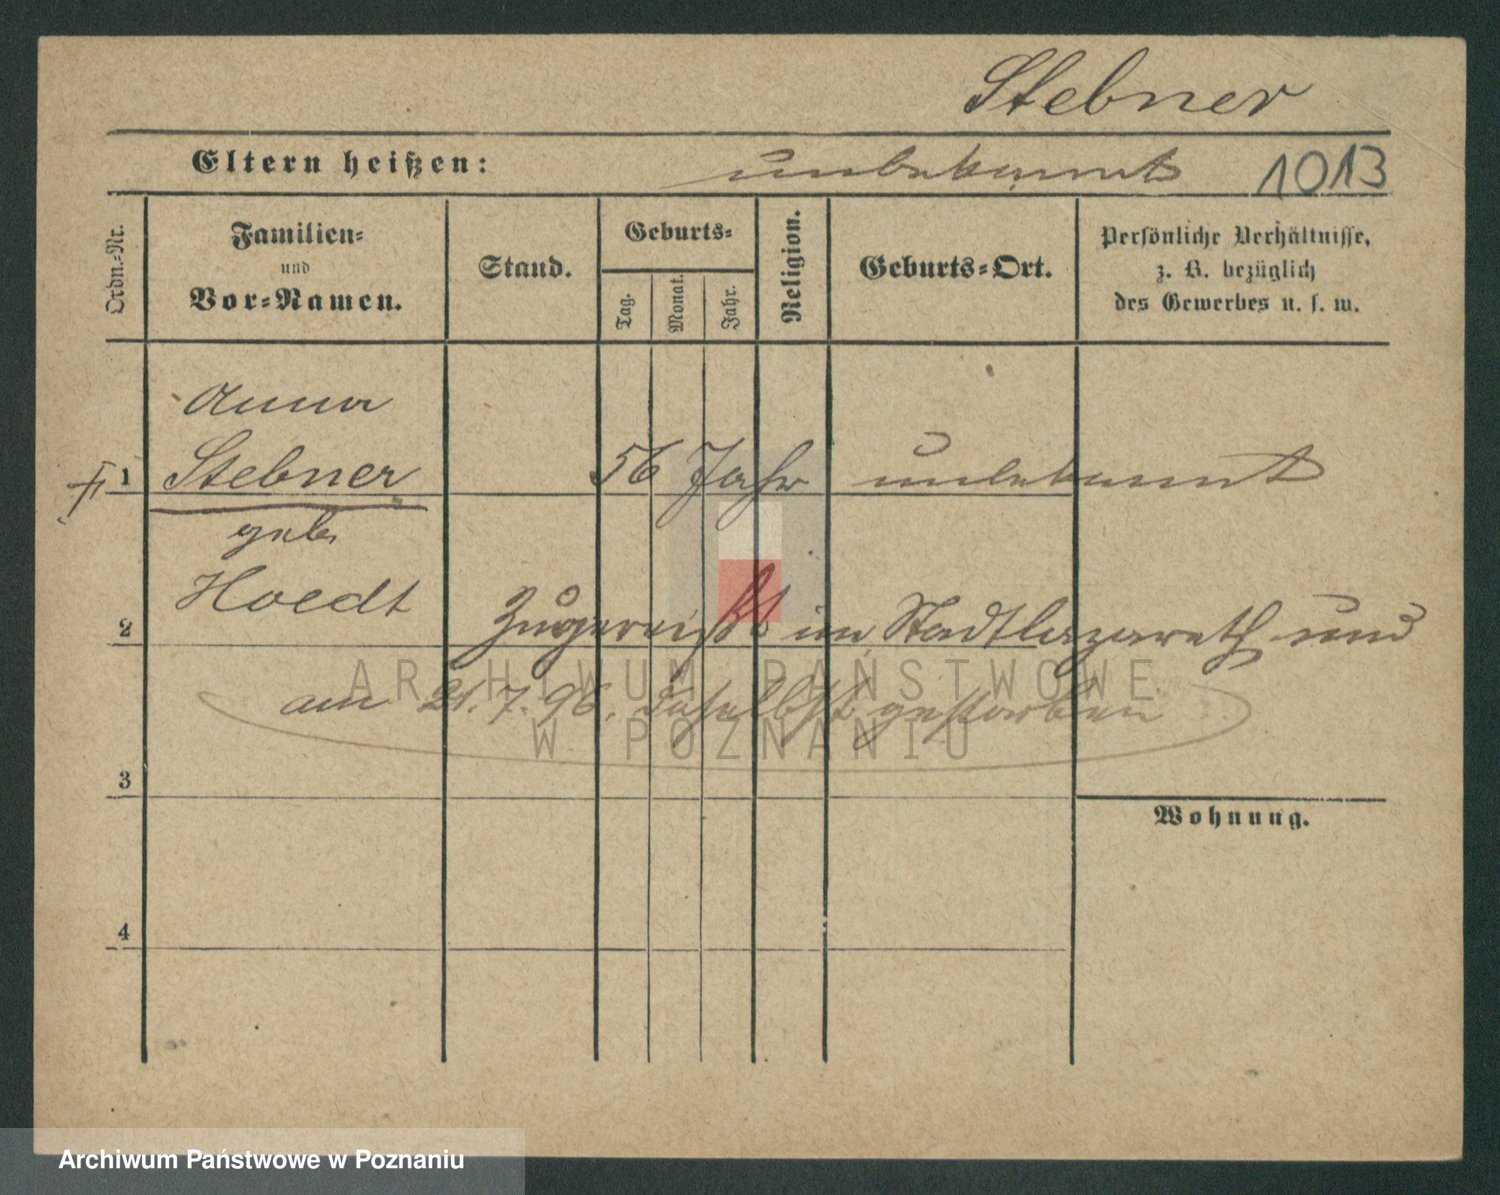 Stebner
Eltern heißen: unbekannt 1013
Ordn.-Nr.
Familien-
und
Vor-Namen.
Stand.
Geburts-
Tag.
Monat.
Jahr.
Religion.
Geburts-Ort.
Persönliche Verhältnisse,
z. B. bezüglich
des Gewerbes u. s. w.
Anna
1 Stebner 56 Jahr unbekannt
geb.
Hoedt
2 Zugereist im Stadtlazareth und
am 21.7.96. daselbst gestorben
3
Wohnung.
4
ARCHIWUM PAŃSTWOWE
W POZNANIU
Archiwum Państwowe w Poznaniu